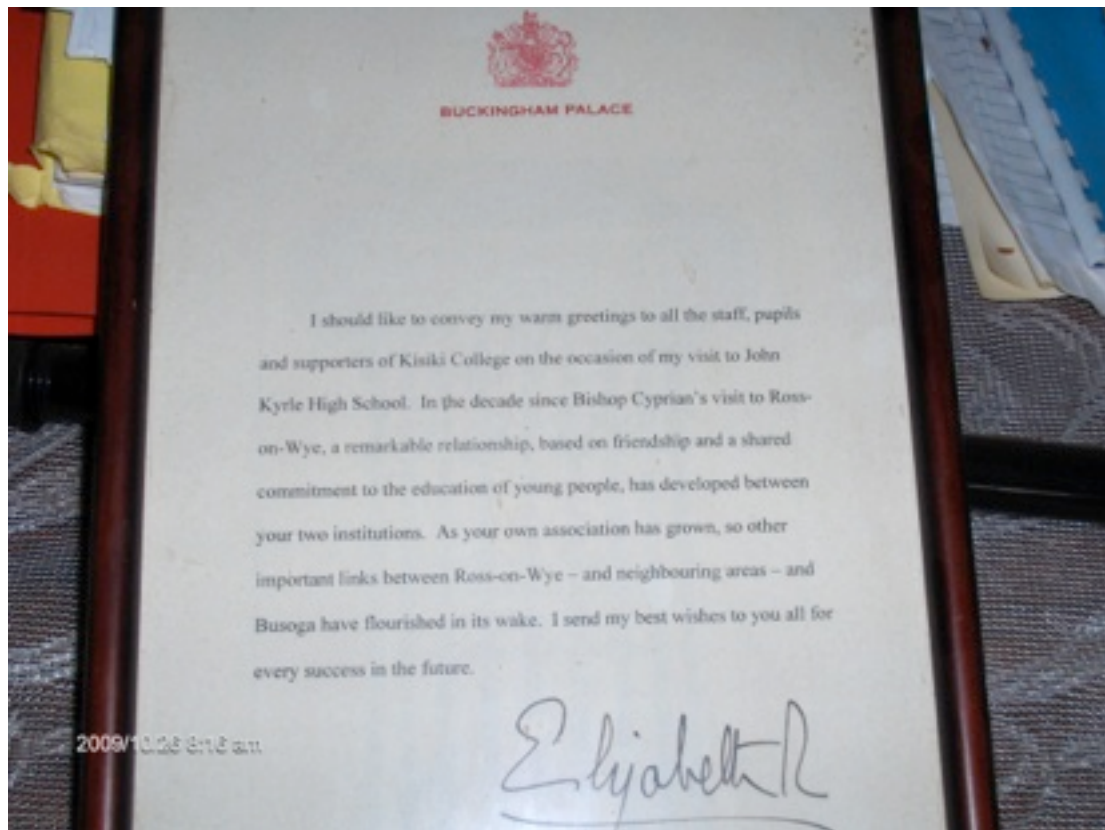 BUCKINGHAM PALACE
I should like to convey my warm greetings to all the staff, pupils
and supporters of Kisiki College on the occasion of my visit to John
Kyrle High School. In the decade since Bishop Cyprian's visit to Ross-
on-Wye, a remarkable relationship, based on friendship and a shared
commitment to the education of young people, has developed between
your two institutions. As your own association has grown, so other
important links between Ross-on-Wye – and neighbouring areas – and
Busoga have flourished in its wake. I send my best wishes to you all for
every success in the future.
Elizabeth R
2009/10/26 8:16 am